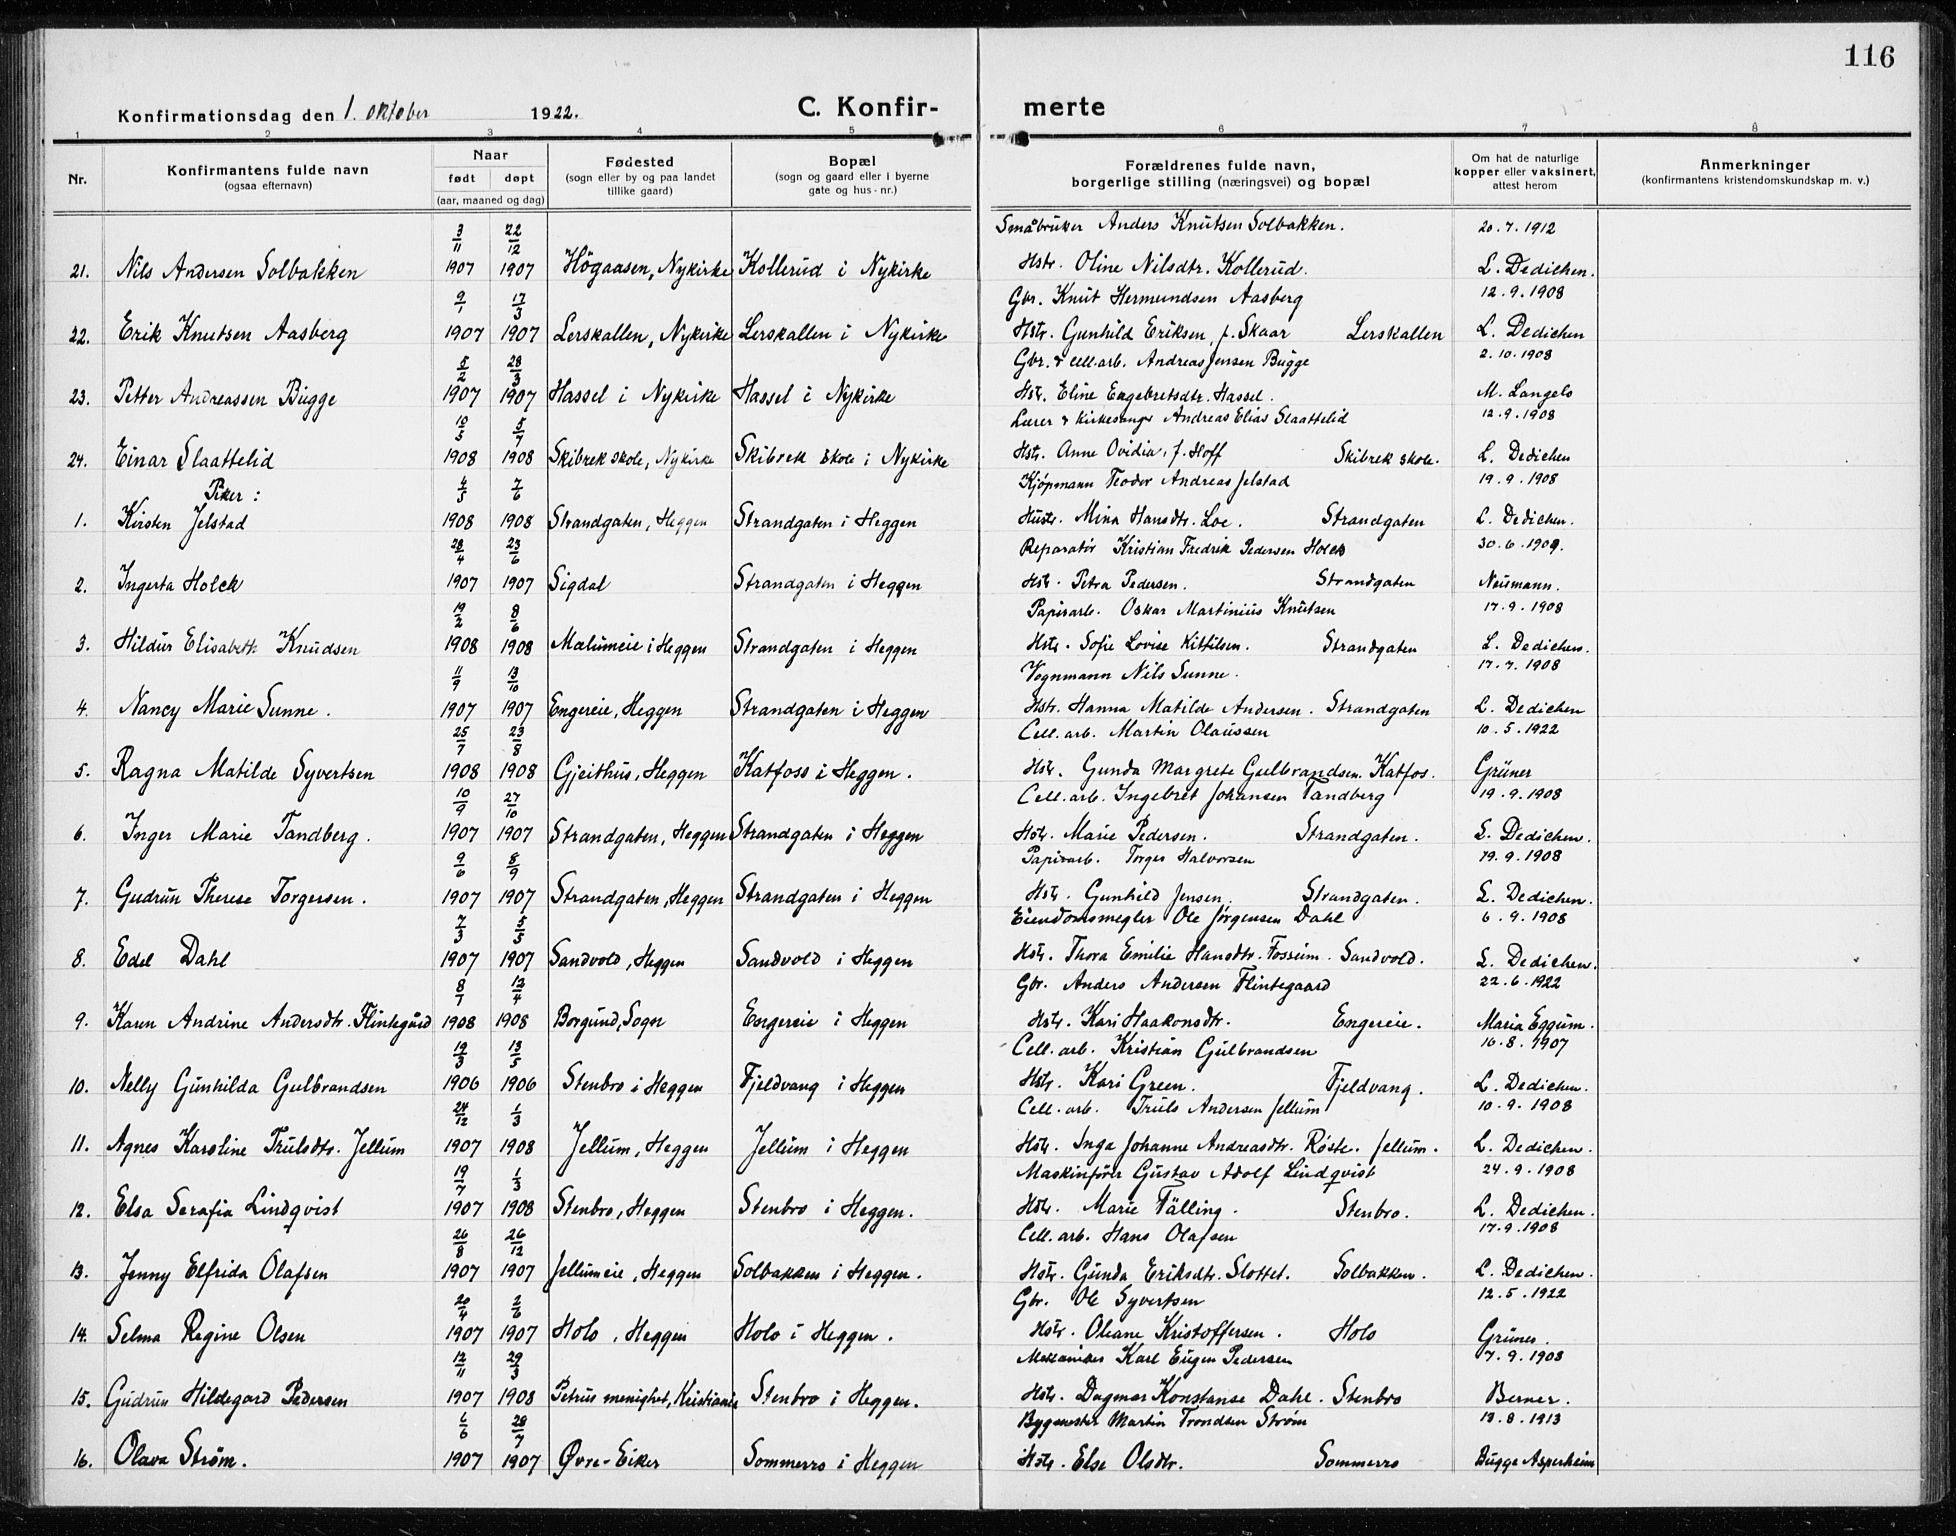 116
Konfirmationsdag den 1. oktober 1922. C. Konfirmerte
1 2 3 4 5 6 7 8
Nr. Konfirmantens fulde navn (ogsaa efternavn) Naar født døpt (aar, maaned og dag) Fødested (sogn eller by og paa landet tillike gaard) Bopæl (sogn og gaard eller i byerne gate og hus-nr.) Forældrenes fulde navn, borgerlige stilling (næringsvei) og bopæl Om hat de naturlige kopper eller vaksinert, attest herom Anmerkninger (konfirmantens kristendomskundskap m. v.)
3/11 22/12 Småbruker Anders Knutsen Solbakken. 20.7.1912
21. Nils Andersen Solbakken 1907 1907 Högaasen, Nykirke Kollerud i Nykirke Hstr. Oline Nilsdtr. Kollerud. L. Dedichen.
9/1 17/3 Gbr. Knut Hermundsen Aasberg 12.9.1908
22. Erik Knutsen Aasberg 1907 1907 Lerskallen, Nykirke Lerskallen i Nykirke Hstr. Gunhild Eriksen, f. Skaar Lerskallen L. Dedichen
5/2 28/3 Gbr. & cell.arb. Andreas Jensen Bugge 2.10.1908
23. Petter Andreassen Bugge 1907 1907 Hassel i Nykirke Hassel i Nykirke Hstr. Eline Engebretsdtr. Hassel. M. Langelo
10/5 5/7 Lærer & kirkesanger Andreas Elias Slaattelid 12.9.1908
24. Einar Slaattelid 1908 1908 Skibrek skole, Nykirke Skibrek skole i Nykirke Hstr. Anne Ovidia, f. Hoff Skibrek skole. L. Dedichen
Piker: 4/5 7/6 Kjøpmann Teodor Andreas Jelstad 19.9.1908
1. Kirsten Jelstad 1908 1908 Strandgaten, Heggen Strandgaten i Heggen Hustr. Mina Hansdtr. Loe. Strandgaten L. Dedichen.
28/4 23/6 Reparatör Kristian Fredrik Pedersen Holck 30.6.1909.
2. Ingerta Holck 1907 1907 Sigdal Strandgaten i Heggen Hstr. Petra Pedersen. Strandgaten Neumann.
19/2 8/6 Papirarb. Oskar Martinius Knutsen 17.9.1908
3. Hildur Elisabeth Knudsen 1908 1908 Mælumeie i Heggen Strandgaten i Heggen Hstr. Sofie Lovise Kittilsen. Strandgaten L. Dedichen.
11/9 13/10 Vognmann Nils Sunne. 17.7.1908
4. Nancy Marie Sunne. 1907 1907 Engereie, Heggen Strandgaten i Heggen Hstr. Hanna Matilde Andersen. Strandgaten L. Dedichen
25/7 23/8 Cell.arb. Martin Olaussen 10.5.1922
5. Ragna Matilde Syvertsen 1908 1908 Gjeithus, Heggen Katfoss i Heggen. Hstr. Gunda Margrete Gulbrandsen. Katfos. Grüner
10/9 27/10 Cell.arb. Ingebret Johansen Tandberg 19.9.1908
6. Inger Marie Tandberg. 1907 1907 Strandgaten, Heggen Strandgaten i Heggen Hstr. Marie Pedersen. Strandgaten. L. Dedichen.
9/6 8/9 Papirarb. Torger Halvorsen 19.9.1908
7. Gudrun Therese Torgersen. 1907 1907 Strandgaten, Heggen Strandgaten i Heggen Hstr. Gunhild Jensen. Strandgaten. L. Dedichen.
7/3 5/5 Eiendomsmegler Ole Jørgensen Dahl 6.9.1908
8. Edel Dahl 1907 1907 Sandvold, Heggen Sandvold i Heggen Hstr. Thora Emilie Hansdtr. Fossum. Sandvold. L. Dedichen.
8/7 12/4 Gbr. Anders Andersen Flintegaard 22.6.1922
9. Karen Andrine Andersdtr. Flintegård 1908 1908 Borgund, Sogn Engereie i Heggen Hstr. Kari Haakonsdtr. Engereie. Maria Eggum.
19/3 13/5 Cell.arb. Kristian Gulbrandsen 16.8.1907
10. Nelly Gunhilda Gulbrandsen 1906 1906 Stenbro i Heggen Fjeldvang i Heggen Hstr. Kari Green. Fjeldvang. L. Dedichen.
24/12 1/3 Cell.arb. Truls Andersen Jellum 10.9.1908
11. Agnes Karoline Trulsdtr. Jellum 1907 1908 Jellum, Heggen Jellum i Heggen Hstr. Inga Johanne Andreasdtr. Röste. Jellum. L. Dedichen.
19/7 1/3 Maskinfører Gustav Adolf Lindqvist 24.9.1908
12. Elsa Serafia Lindqvist 1907 1908 Stenbro, Heggen Stenbro i Heggen. Hstr. Marie Tälling. Stenbro. L. Dedichen.
26/8 26/12 Cell.arb. Hans Olafsen 17.9.1908
13. Jenny Elfrida Olafsen 1907 1907 Jellumeie, Heggen Solbakken i Heggen. Hstr. Gunda Eriksdtr. Slottet. Solbakken. L. Dedichen.
20/4 2/6 Gbr. Ole Syvertsen 12.5.1922
14. Selma Regine Olsen 1907 1907 Holo, Heggen Holo i Heggen. Hstr. Oleane Kristoffersen. Holo Grüner.
12/11 29/3 Mekaniker Karl Eugen Pedersen 7.9.1908
15. Gudrun Hildegard Pedersen 1907 1908 Petrus menighet, Kristiania Stenbro i Heggen. Hstr. Dagmar Konstanse Dahl. Stenbro Berner.
6/6 28/7 Bygmester Martin Trondsen Strøm 18.8.1913
16. Olava Strøm. 1907 1907 Øvre-Eiker Sommerro i Heggen Hstr. Else Olsdtr. Sommerro Bugge Asperheim